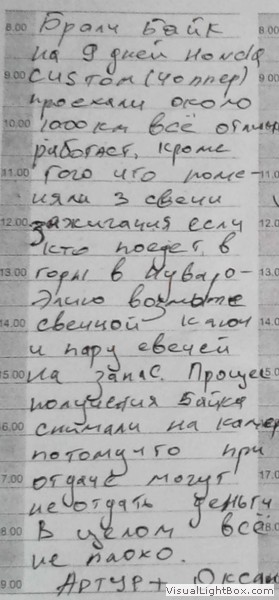 8.00 Брали Байк 8.00
на 9 дней Honda
9.00 custom (чоппер) 9.00
проехали около
10.00 1000 км всё отлично
работает, кроме
11.00 того что поме-
няли 3 свечи
12.00 зажигания если
кто поедет в
13.00 горы в Нуваро-
Элию возьмите
14.00 свечной ключ
и пару свечей
15.00 на запас. Процесс
получения Байка
16.00 снимали на камер
потому что при
17.00 отдаче могут 17.0
не отдать деньги
18.00 В целом всё 18.0
не плохо.
9.00 Артур + Оксан
VisualLightBox.com